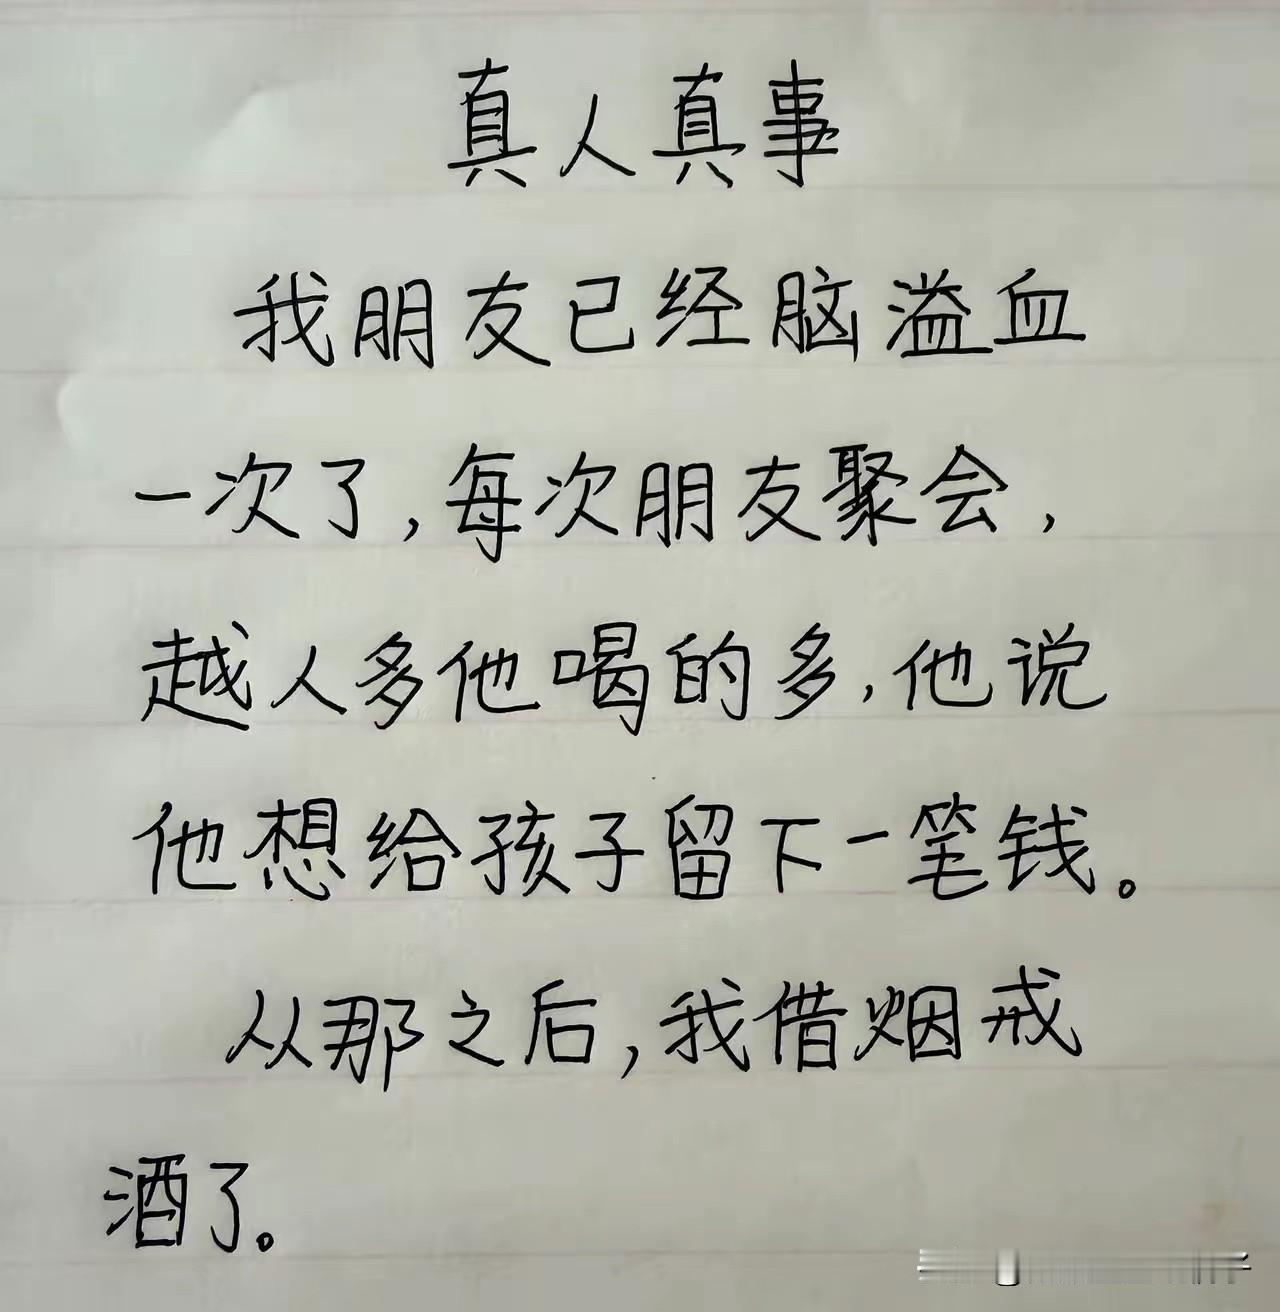 真人真事
我朋友已经脑溢血
一次了,每次朋友聚会,
越人多他喝的多,他说
他想给孩子留下一笔钱。
从那之后,我借烟戒
酒了。